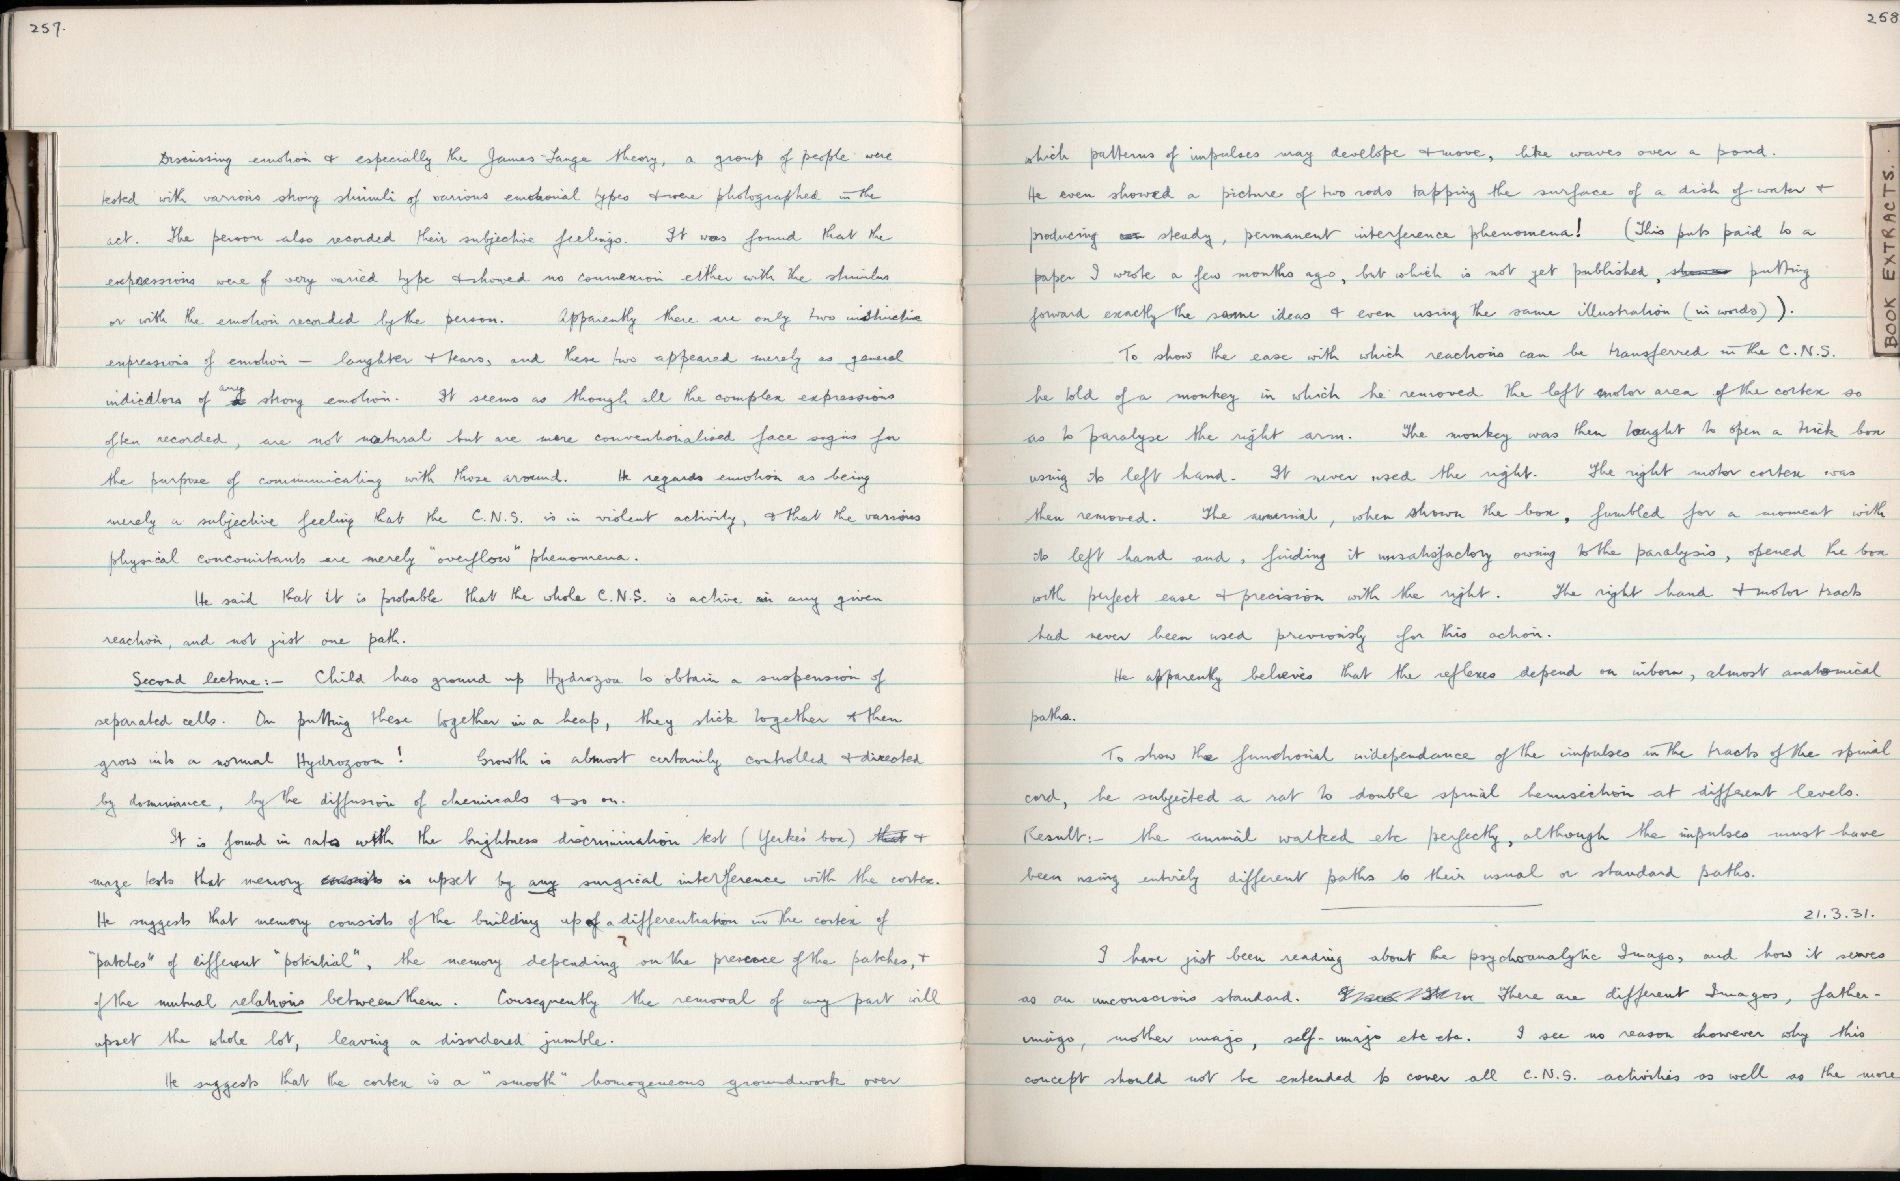 257.
Discussing emotion & especially the James-Lange theory, a group of people were
tested with various strong stimuli of various emotional types & were photographed in the
act. The person also recorded their subjective feelings. It was found that the
expressions were of very varied type & showed no connexion either with the stimulus
or with the emotion recorded by the person. Apparently there are only two instinctive
expressions of emotion — laughter & tears, and these two appeared merely as general
indicators of any strong emotion. It seems as though all the complex expressions
often recorded, are not natural but are mere conventionalised face signs for
the purpose of communicating with those around. He regards emotion as being
merely a subjective feeling that the C.N.S. is in violent activity, & that the various
physical concomitants are merely "overflow" phenomena.
He said that it is probable that the whole C.N.S. is active in any given
reaction, and not just one path.
Second lecture:— Child has ground up Hydrozoa to obtain a suspension of
separated cells. On putting these together in a heap, they stick together & then
grow into a normal Hydrozoon! Growth is almost certainly controlled & directed
by dominance, by the diffusion of chemicals & so on.
It is found in rats with the brightness discrimination test (Yerkes' box) that &
maze tests that memory consists is upset by any surgical interference with the cortex.
He suggests that memory consists of the building up of a differentiation in the cortex of
"patches" of different "potential", the memory depending on the presence of the patches, &
of the mutual relations between them. Consequently the removal of any part will
upset the whole lot, leaving a disordered jumble.
He suggests that the cortex is a "smooth" homogeneous groundwork over
258
which patterns of impulses may develope & move, like waves over a pond.
He even showed a picture of two rods tapping the surface of a dish of water &
producing steady, permanent interference phenomena! (This puts paid to a
paper I wrote a few months ago, but which is not yet published, putting
forward exactly the same ideas & even using the same illustration (in words)).
To show the ease with which reactions can be transferred in the C.N.S.
he told of a monkey in which he removed the left motor area of the cortex so
as to paralyse the right arm. The monkey was then taught to open a trick box
using its left hand. It never used the right. The right motor cortex was
then removed. The animal, when shown the box, fumbled for a moment with
its left hand and, finding it unsatisfactory owing to the paralysis, opened the box
with perfect ease & precision with the right. The right hand & motor tracts
had never been used previously for this action.
He apparently believes that the reflexes depend on inborn, almost anatomical
paths.
To show the functional independance of the impulses in the tracts of the spinal
cord, he subjected a rat to double spinal hemisection at different levels.
Result:— the animal walked etc perfectly, although the impulses must have
been using entirely different paths to their usual or standard paths.
21.3.31.
I have just been reading about the psychoanalytic Imago, and how it serves
as an unconscious standard. There are different Imagos, father-
imago, mother imago, self-imago etc etc. I see no reason however why this
concept should not be extended to cover all C.N.S. activities as well as the more
BOOK EXTRACTS.